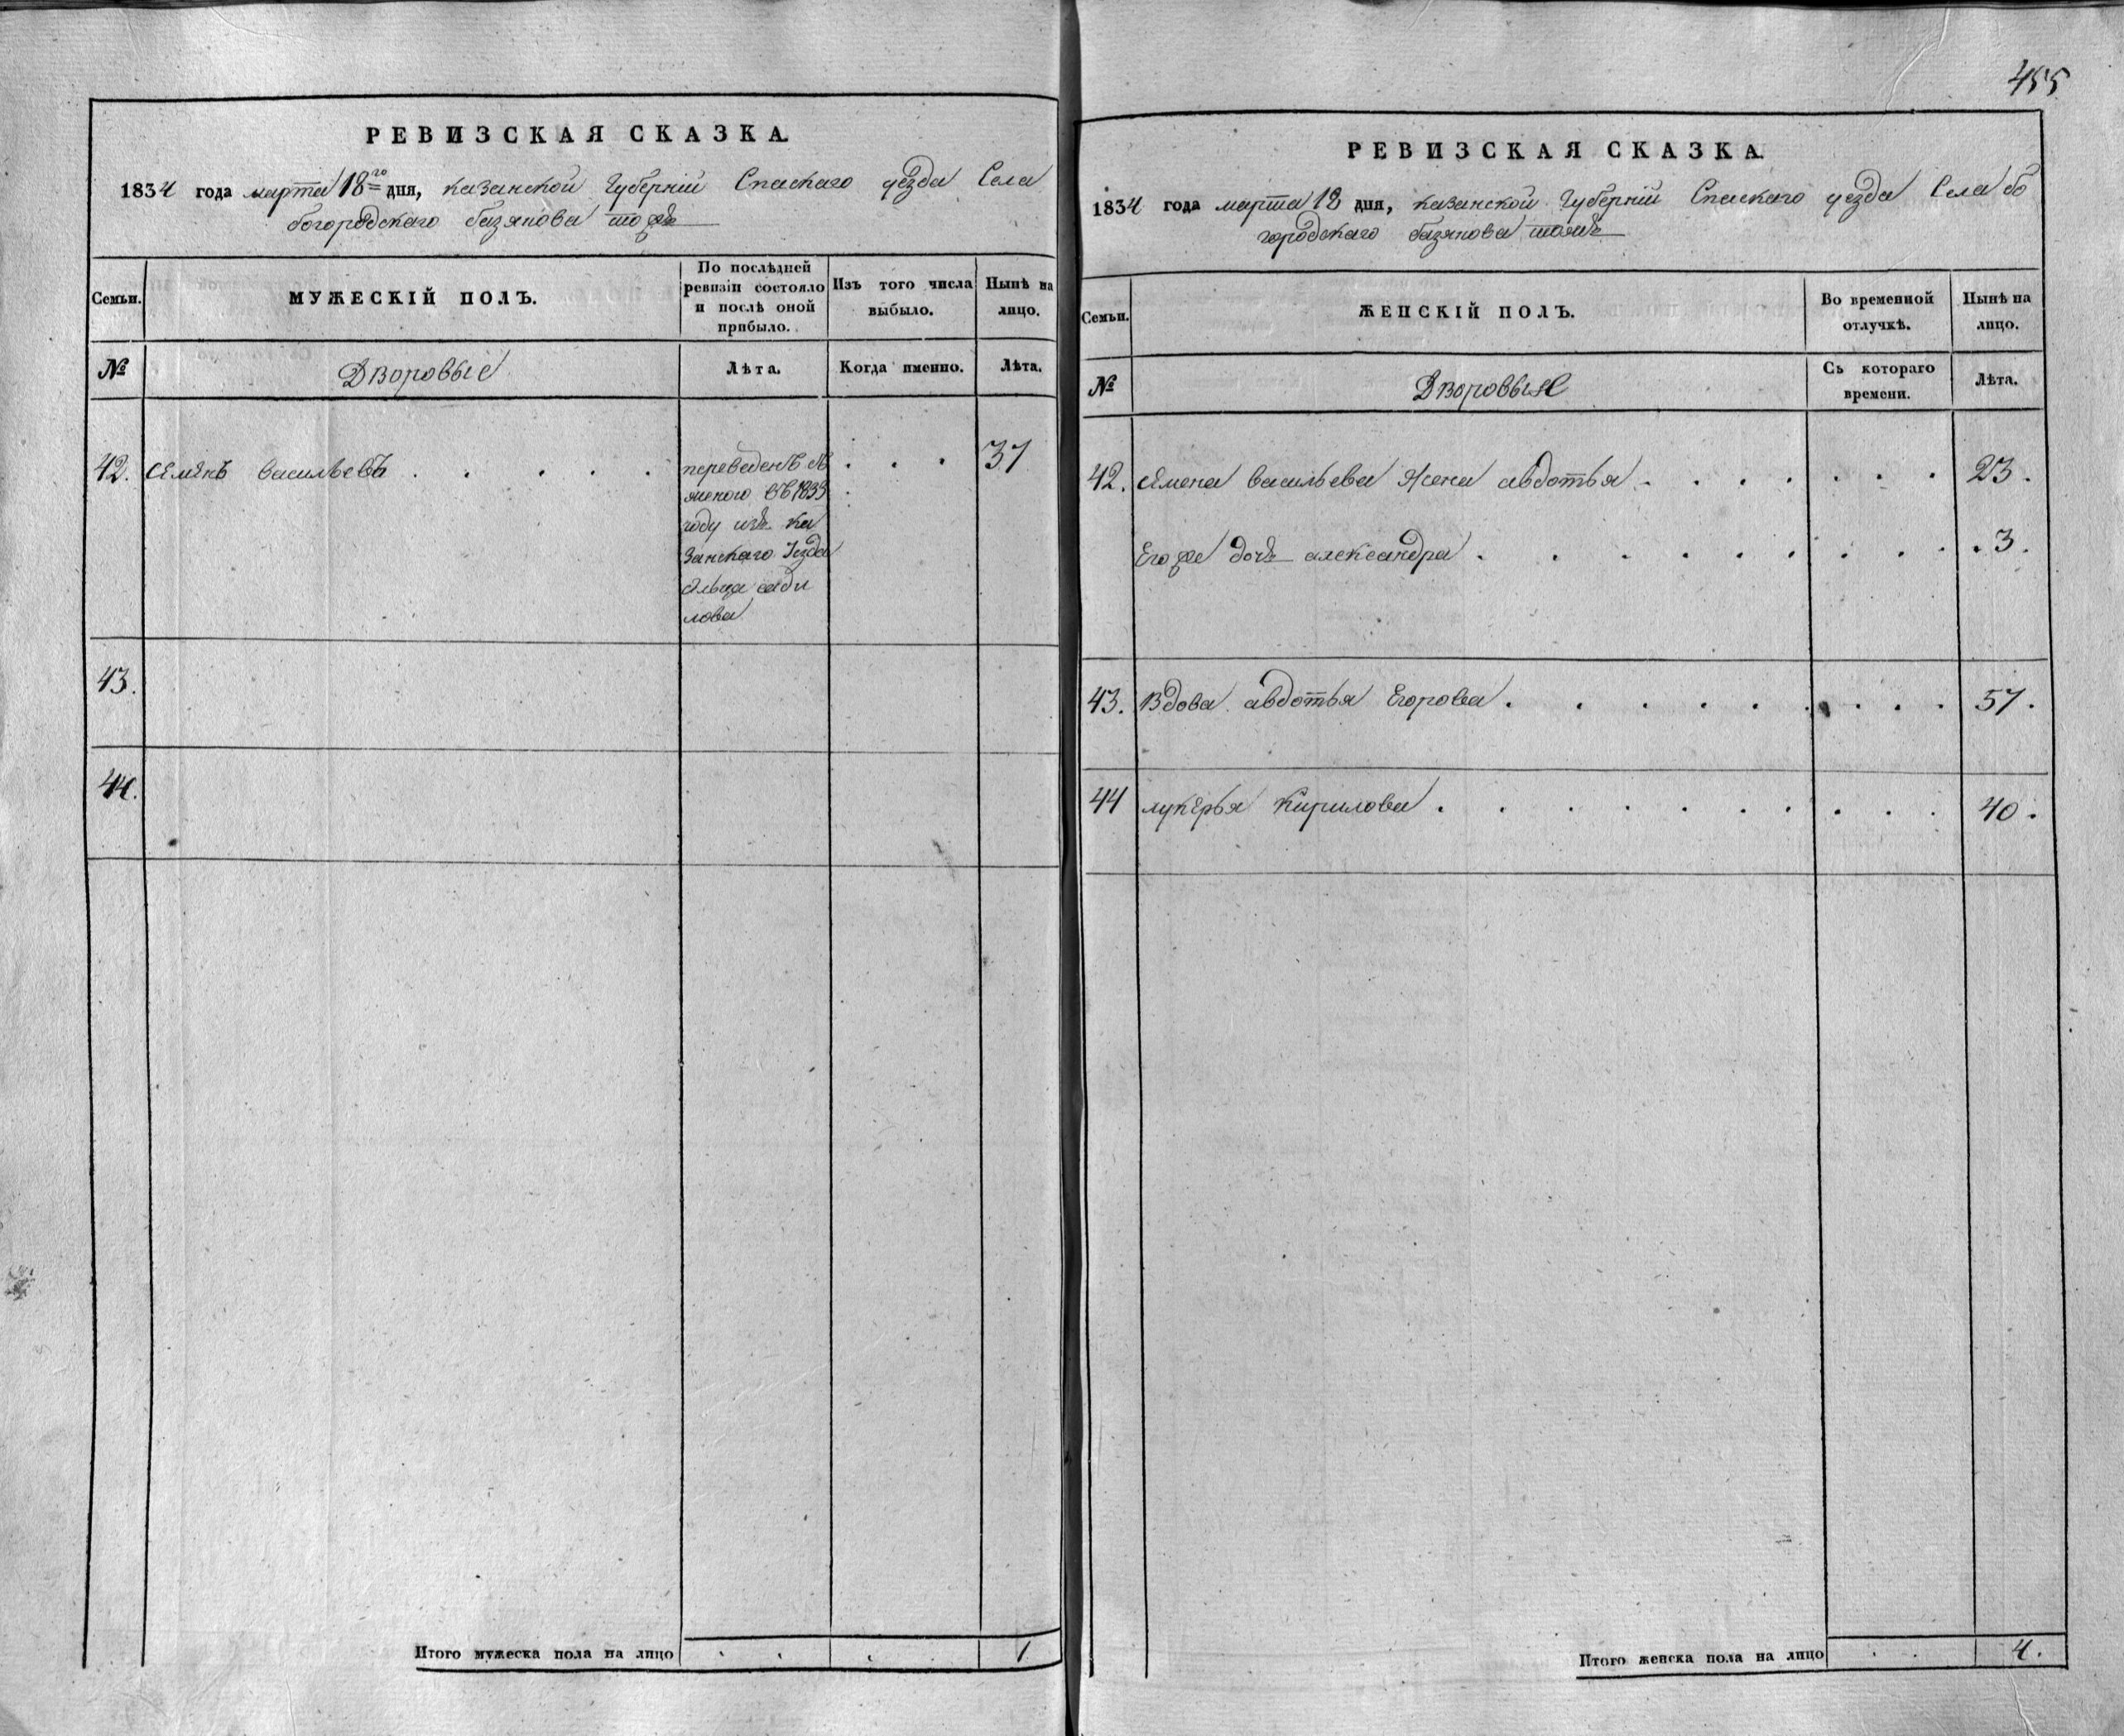 РЕВИЗСКАЯ СКАЗКА.
1834 года марта 18го дня, казанской Губерніи Спаскаго уезда Села
богородскаго базякова тожъ
Семьи. МУЖЕСКІЙ ПОЛЪ. По послѣдней ревизіи состояло и послѣ оной прибыло. Изъ того числа выбыло. Нынѣ на лицо.
№ Дворовыя Лѣта. Когда именно. Лѣта.
42. Семенъ васильевъ . . . . . 37
переведенъ
въ 1833
году изъ ка
занскаго уезда
сельца
лова
43.
44.
Итого мужеска пола на лицо 1
455
РЕВИЗСКАЯ СКАЗКА.
1834 года марта 18 дня, казанской Губерніи Спаскаго уезда Села бо
городскаго базякова тожъ
Семьи. ЖЕНСКІЙ ПОЛЪ. Во временной отлучкѣ. Нынѣ на лицо.
№ Дворовыя Съ котораго времени. Лѣта.
42. Семена васильева Жена авдотья . . . . . . . 23.
Его же дочь александра . . . . . . . . . 3.
43. Вдова авдотья Егорова . . . . . . . . . 57.
44 лукерья Кирилова . . . . . . . . . 40.
Итого женска пола на лицо 4.